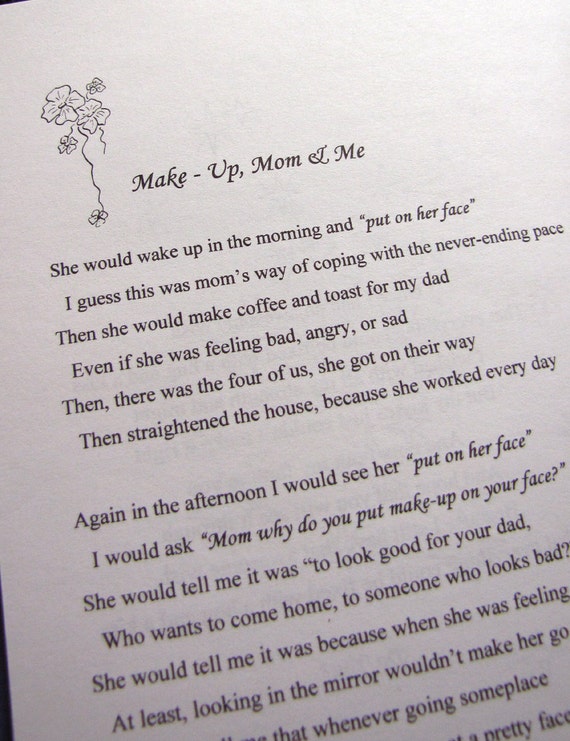 Make - Up, Mom & Me
She would wake up in the morning and "put on her face"
I guess this was mom's way of coping with the never-ending pace
Then she would make coffee and toast for my dad
Even if she was feeling bad, angry, or sad
Then, there was the four of us, she got on their way
Then straightened the house, because she worked every day
Again in the afternoon I would see her "put on her face"
I would ask "Mom why do you put make-up on your face?"
She would tell me it was "to look good for your dad,
Who wants to come home, to someone who looks bad?
She would tell me it was because when she was feeling
At least, looking in the mirror wouldn't make her go
me that whenever going someplace
a pretty face